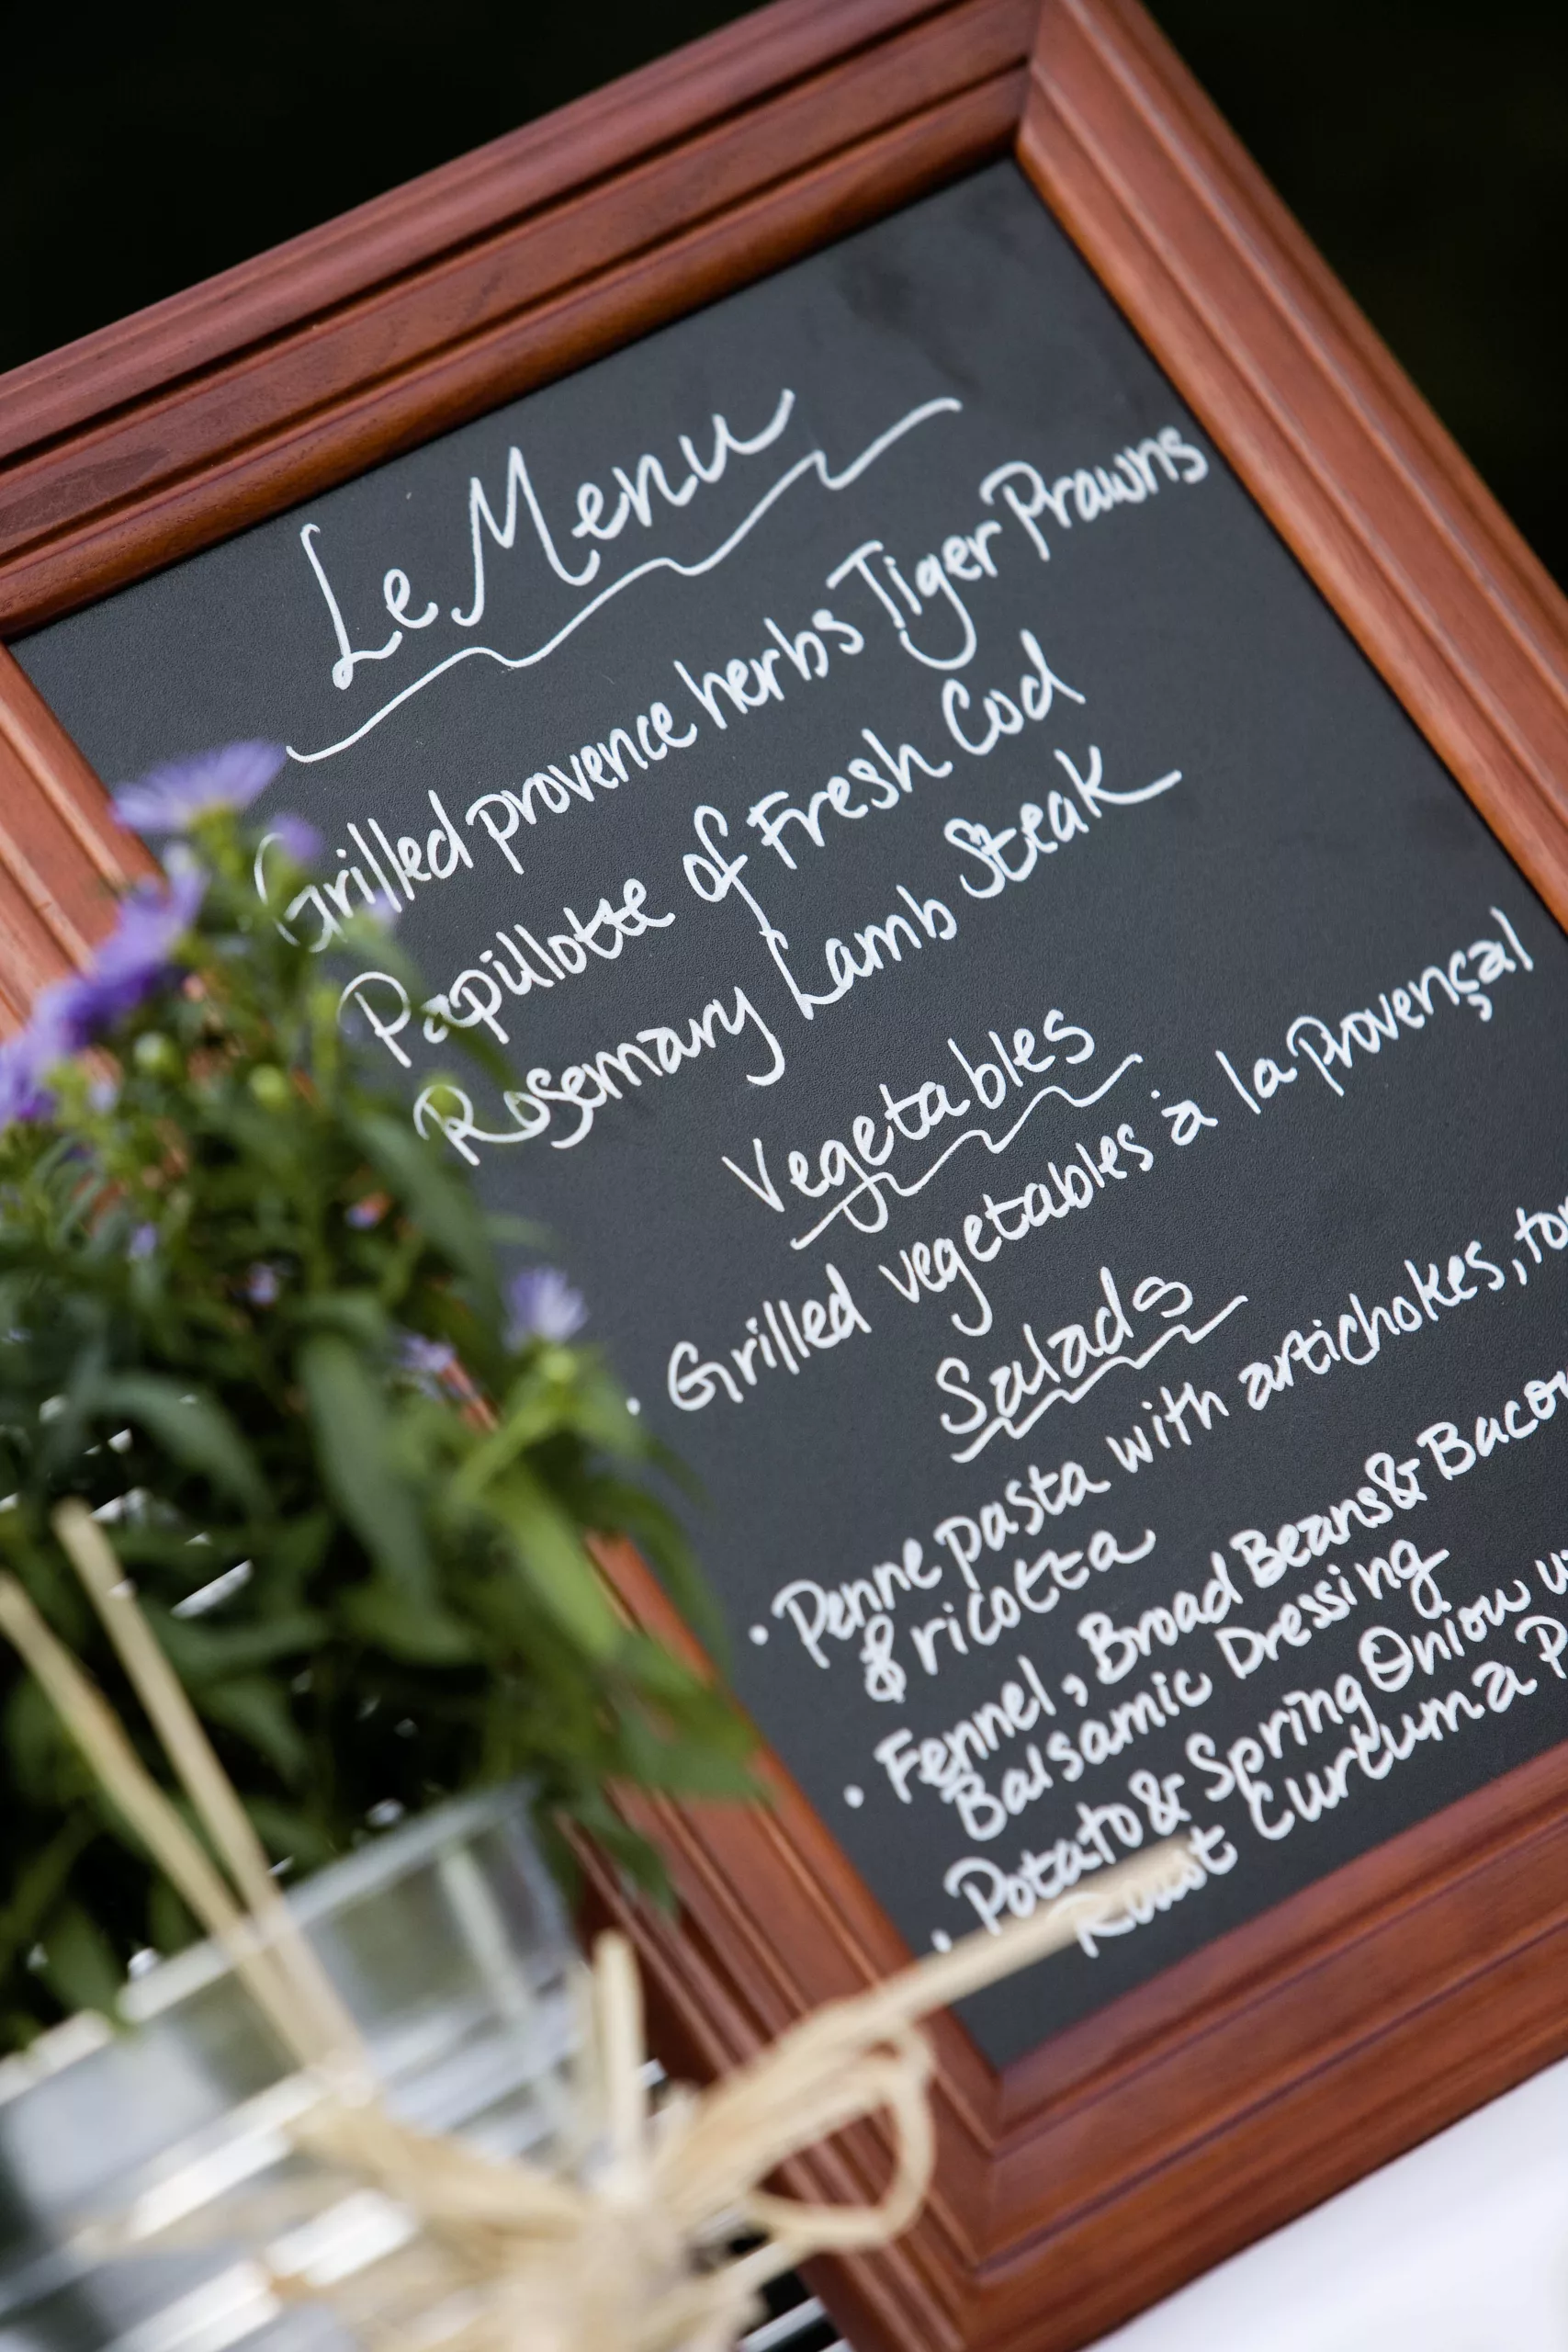 Le Menu
Grilled provence herbs Tiger Prawns
Papillotte of Fresh Cod
Rosemary Lamb Steak
Vegetables
• Grilled vegetables à la Provençal
Salads
• Penne pasta with artichokes,
& ricotta
• Fennel, Broad Beans & Bacon
Balsamic Dressing
• Potato & Spring Onion
Curcuma